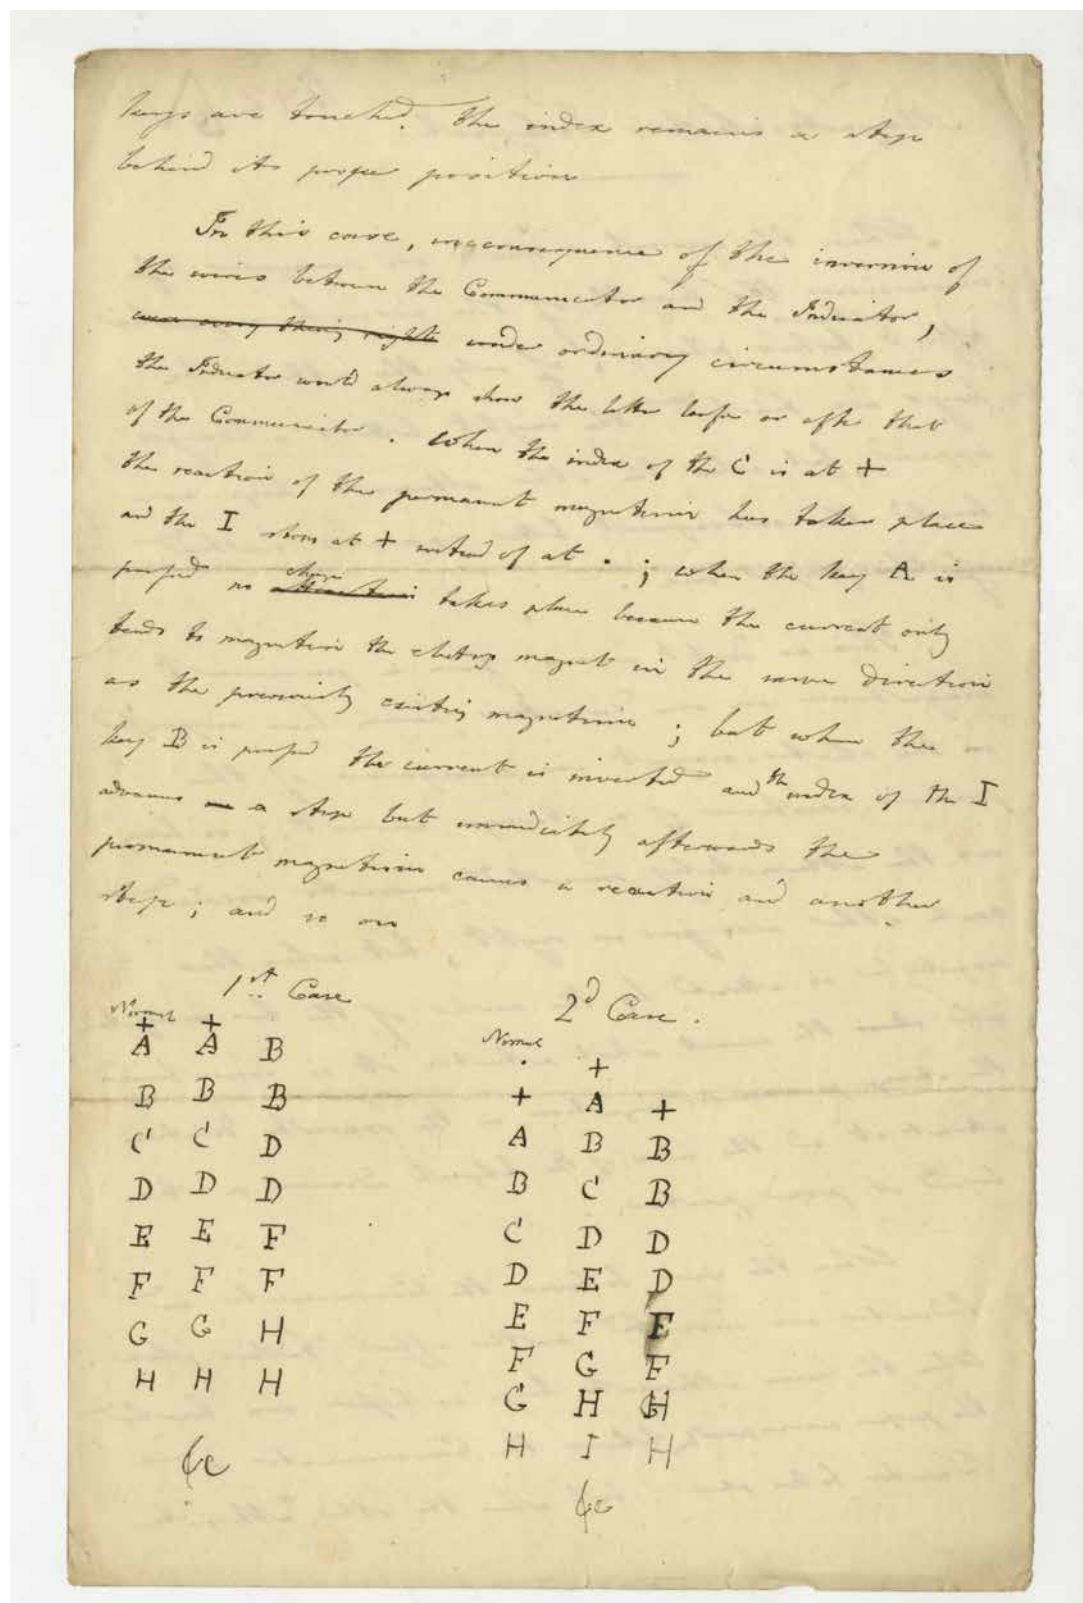 keys are touched. The index remains a step
behind its proper position
In this case, in consequence of the inversion of
the wires between the Communicator and the Indicator,
every thing right under ordinary circumstances
the Indicator would always show the letter before or after that
of the Communicator. When the index of the C is at +
the reaction of the permanent magnetism has taken place
and the I stops at + instead of at · ; when the key A is
pressed no change takes place because the current only
tends to magnetise the electro magnet in the same direction
as the previously existing magnetism ; but when the
key B is pressed the current is inverted and the index of the I
advances a step but immediately afterwards the
permanent magnetism causes a reaction and another
step ; and so on
1st Case
Normal
+ +
A A B
B B B
C C D
D D D
E E F
F F F
G G H
H H H
&c
2d Case.
Normal
· +
+ A +
A B B
B C B
C D D
D E D
E F F
F G F
G H H
H I H
&c